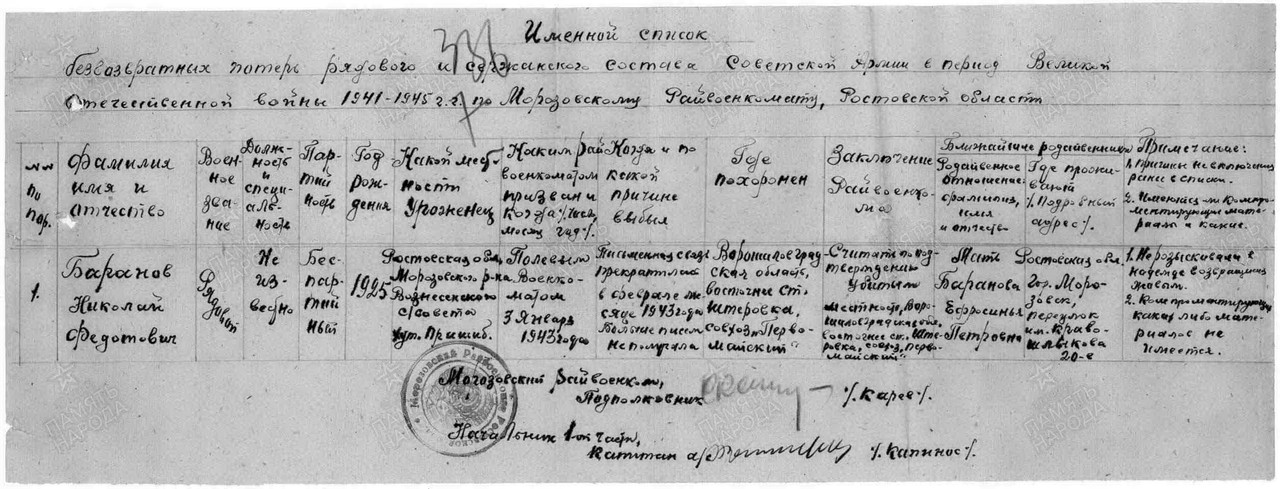 Именной список
безвозвратных потерь рядового и сержанского состава Советской Армии в период Великой
Отечественной войны 1941-1945 г.г. по Морозовскому Райвоенкомату, Ростовской области
№№ по пор.
Фамилия
имя и
отчество
Воен-
ное
зва-
ние
Долж-
ность
и
специ-
аль-
ность
Пар-
тий
ность
Год
рож-
дения
Какой мест-
ности
Урожнец
Каким рай
военкоматом
призван и
когда
месяц год
Когда и по
какой
причине
выбыл
Где
похоронен
Заключение
Райвоенко-
ма
Ближайшие родственники
Родственное
отношение:
фамилия,
имя
и отчество
Где прожи-
вают
Подробный
адрес
Примечание:
1. причины не включения
ранее в списки.
2. Имелись ли компро-
ментирующие мате-
риалы и какие.
1.
Баранов
Николай
Федотович
Рядовой
Не
из-
вестно
Бес-
пар-
тий
ный
1925
Ростовская обл.
Морозовского р-на
Вознесенского
с/совета
хут.
Полевым
Военко-
матом
3 Января
1943 года
Письменная связь
прекратилась
в феврале ме-
сяце 1943 года
Больше писем
не получала
Ворошиловград-
ская область,
восточнее ст.
Штеровка,
совхоз „Перво-
майский"
Считать по под-
тверждению
Убитым
местность, Воро-
шиловградская обл.,
восточнее ст.Ште-
ровка, совхоз „Перво-
майский"
Мать
Баранова
Ефросинья
Петровна
Ростовская обл.
гор. Моро-
зовск,
переулок
им. Криво-
шлыкова
20-е
1. Не розыскивали в
надежде возвращения
живым.
2. Компроментирующих
каких либо мате-
риалов не
имеется.
Морозовский Райвоенком,
Подполковник /Карев/.
Начальник 1-ой части,
Капитан а/с /Капинос/.
ПАМЯТЬ НАРОДА